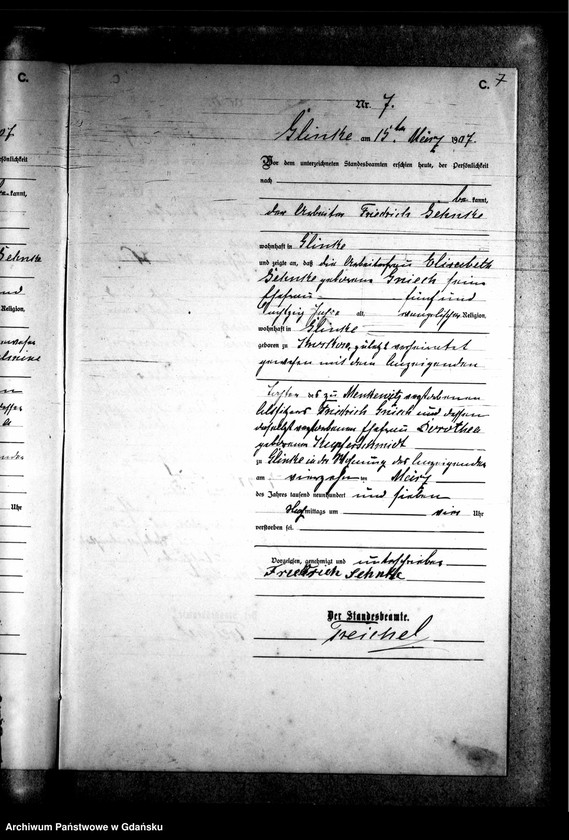 C. 7
Nr. 7.
Glinke am 15ten März 1907.
Vor dem unterzeichneten Standesbeamten erschien heute, der Persönlichkeit
nach
be kannt,
der Arbeiter Friedrich Sehnke
wohnhaft in Glinke
und zeigte an, daß die Arbeiterfrau Elisabeth
Sehnke geborene Griech seine
Ehefrau fünf und
sechzig Jahre alt, evangelischer Religion,
wohnhaft in Glinke
geboren zu zuletzt verheiratet
gewesen mit dem Anzeigenden
Tochter des zu verstorbenen
Altsitzers Friedrich und dessen
daselbst verstorbenen Ehefrau Dorothea
geborenen Kupferschmidt
zu Glinke in der Wohnung des Anzeigenden
am vierzehnten März
des Jahres tausend neunhundert und sieben
Nachmittags um vier Uhr
verstorben sei.
Vorgelesen, genehmigt und unterschrieben
Friedrich Sehnke
Der Standesbeamte.
Treichel
C.
Religion,
Uhr
Archiwum Państwowe w Gdańsku